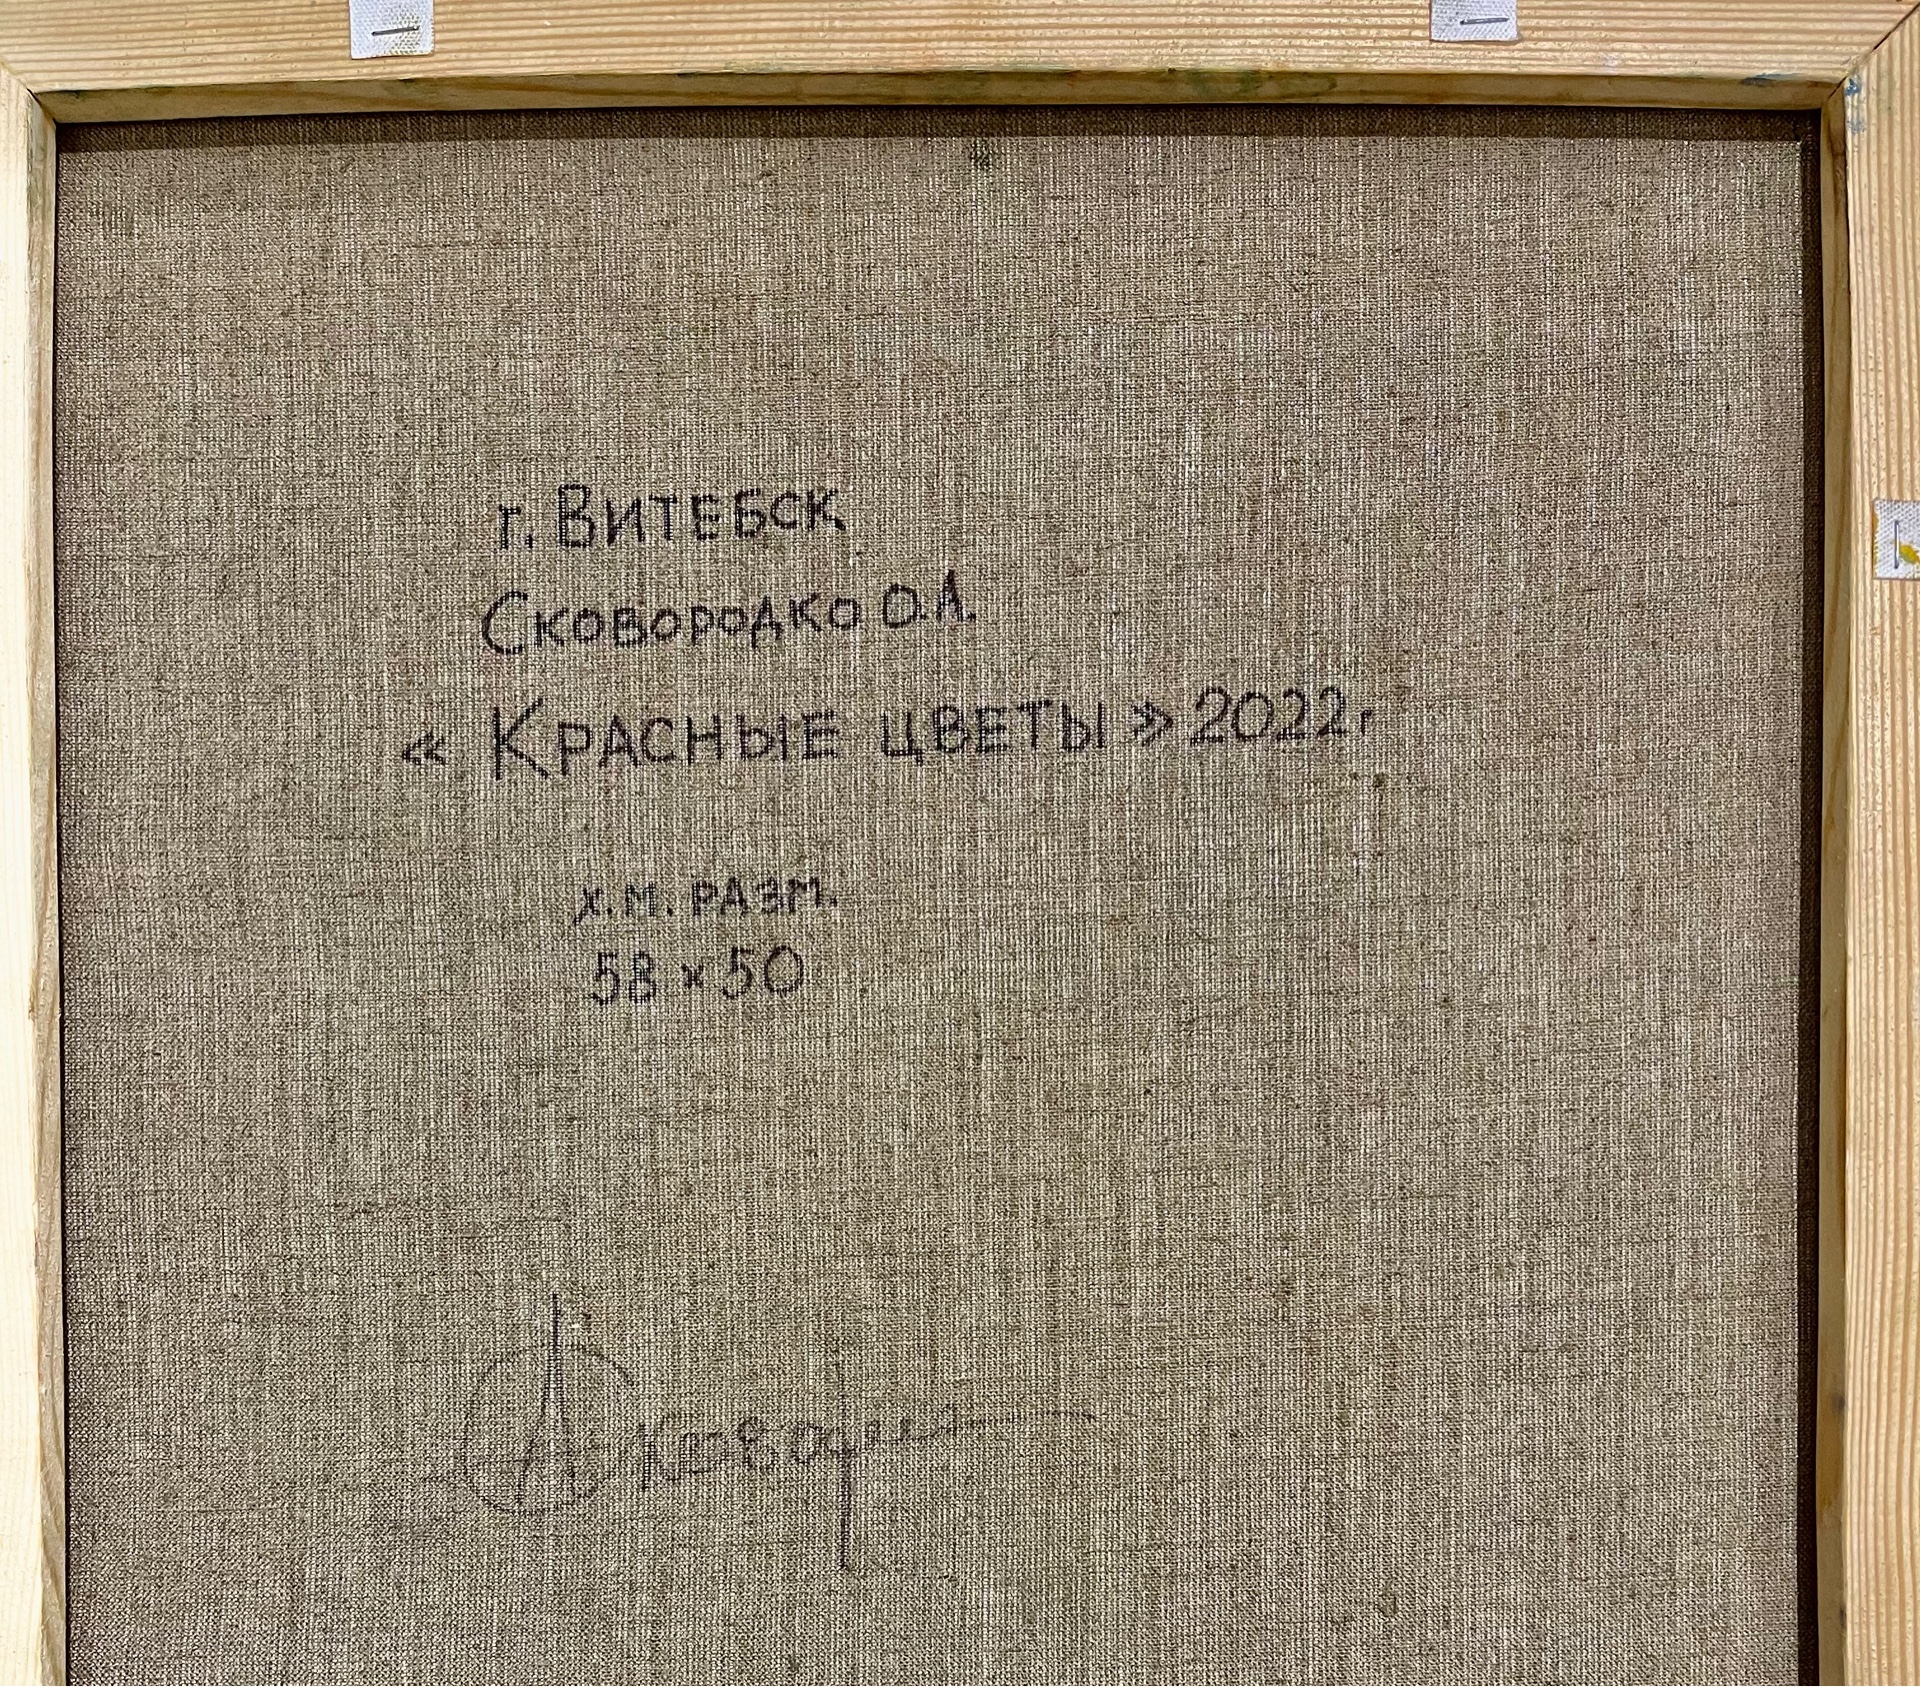 г. Витебск
Сковородко О.А.
« Красные цветы » 2022г
х.м. разм.
58 х 50